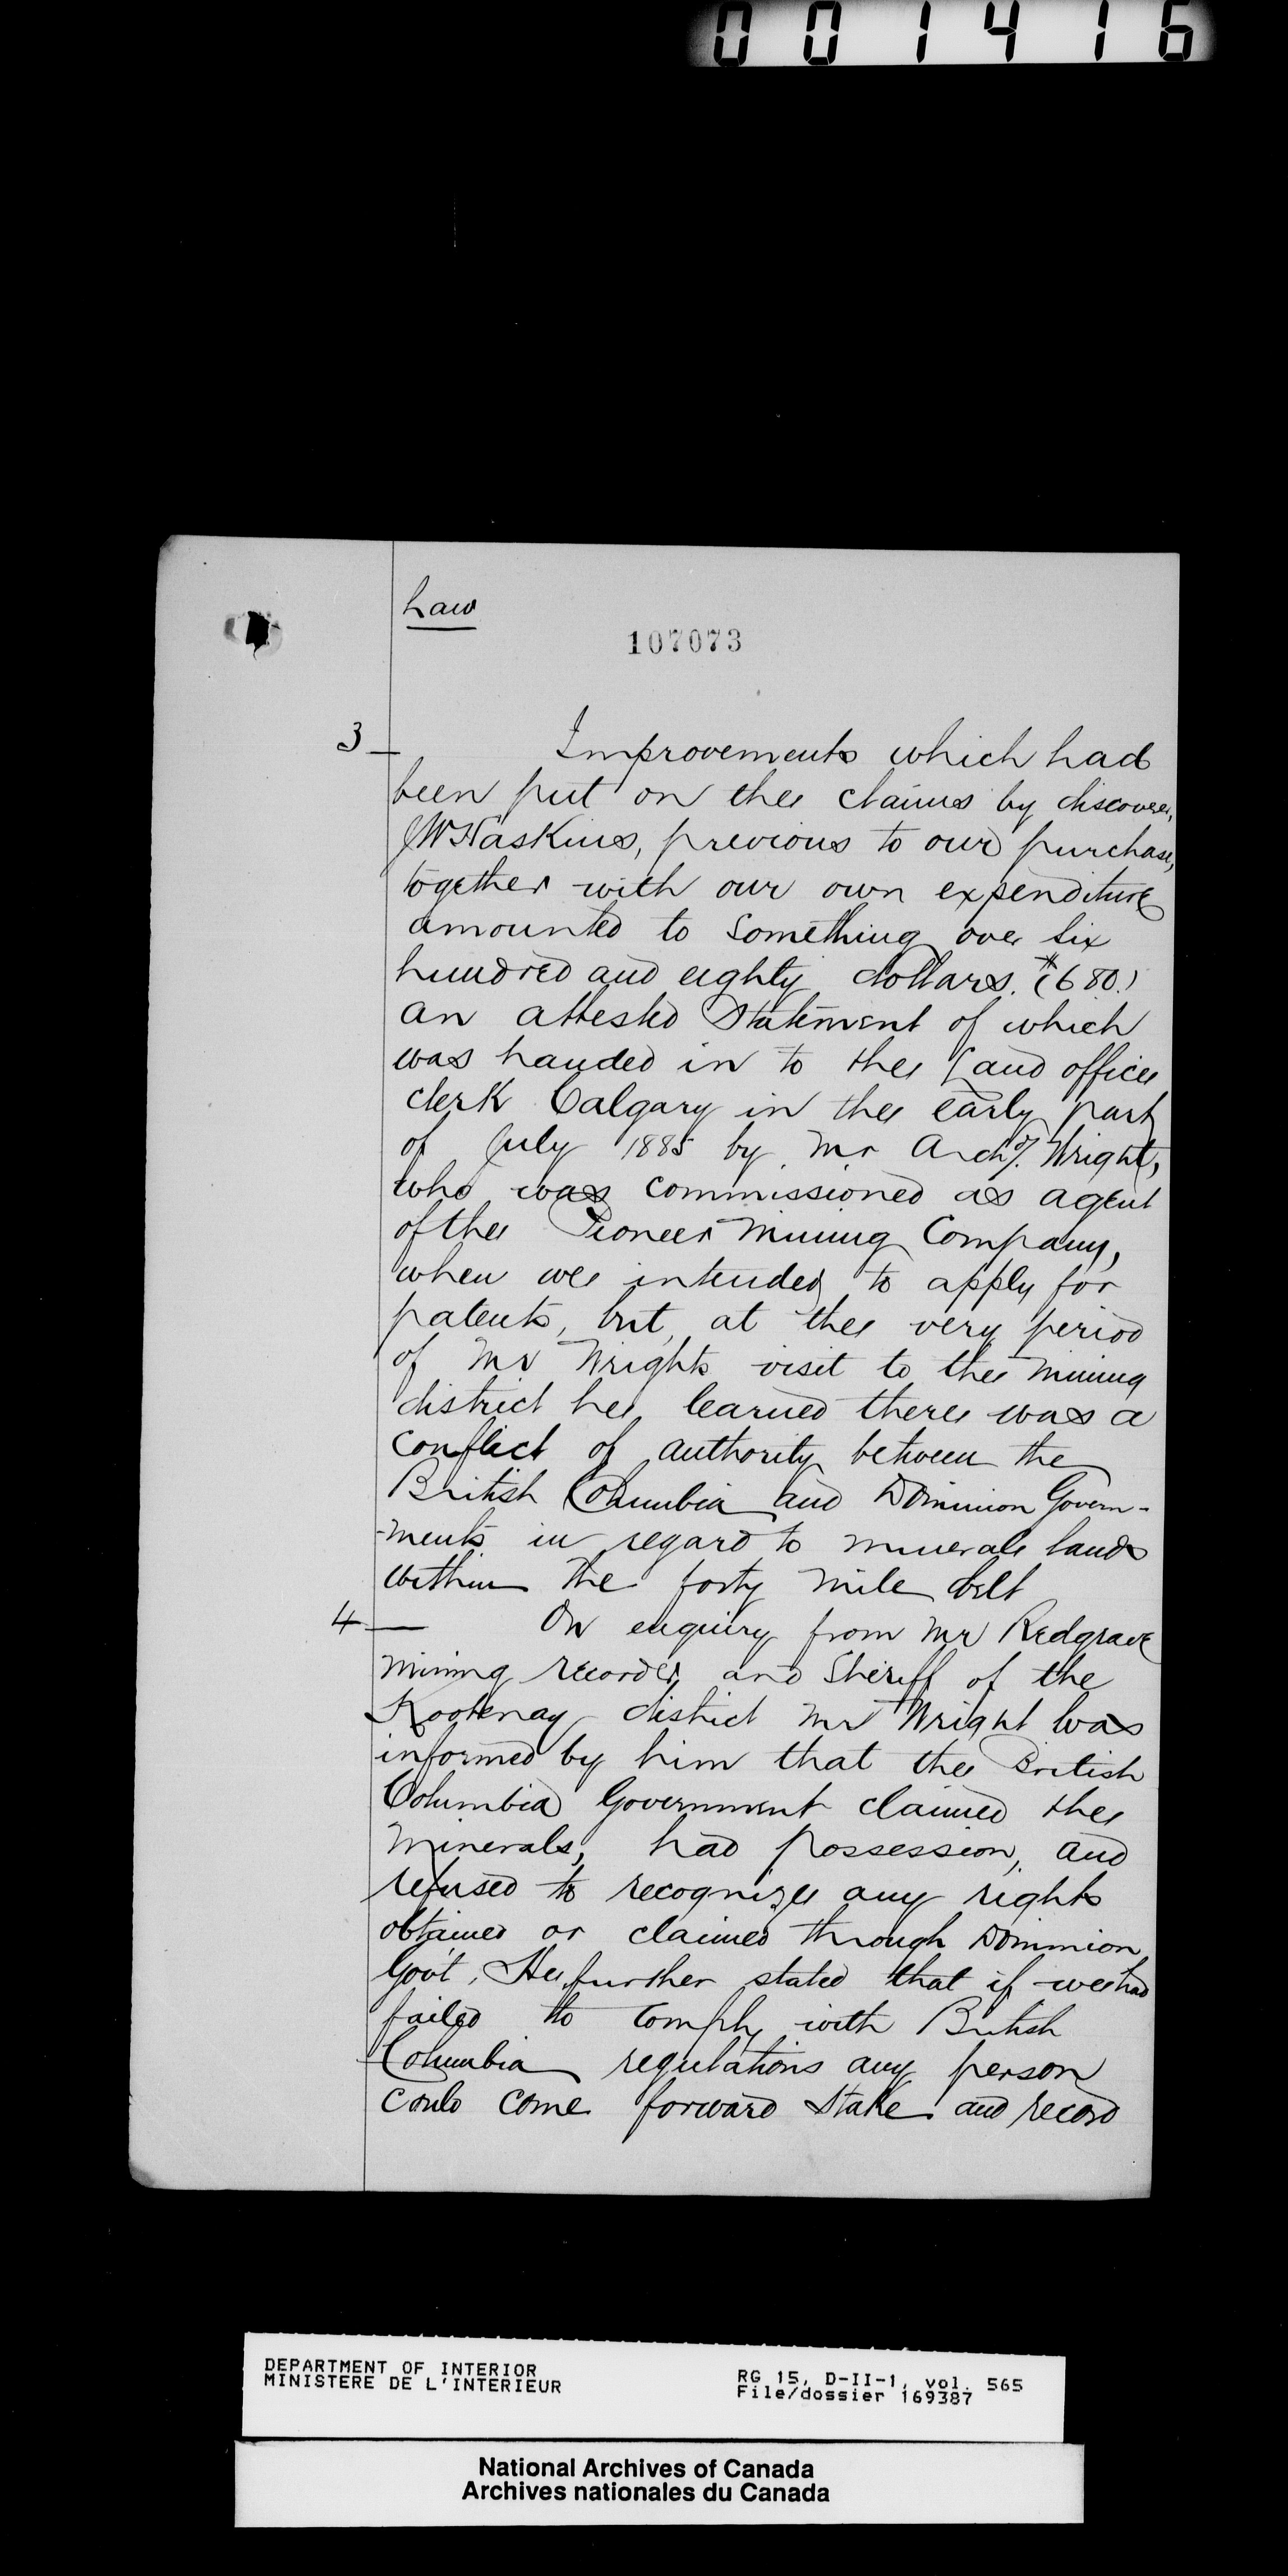 001416
Law
107073
3 — Improvements which had
been put on the claims by discoverer,
JW Haskins, previous to our purchase,
together with our own expenditure
amounted to something over six
hundred and eighty dollars. ($680.)
an attested statement of which
was handed in to the Land office
clerk Calgary in the early part
of July 1885 by Mr Archd. Wright,
who was commissioned as agent
of the Pioneer Mining Company,
when we intended to apply for
patents, but, at the very period
of Mr Wrights visit to the mining
district he learned there was a
conflict of authority between the
British Columbia and Dominion Govern-
-ments in regard to minerals lands
within the forty mile belt
4 — On enquiry from Mr Redgrave
mining recorder and Sheriff of the
Kootenay district Mr Wright was
informed by him that the British
Columbia Government claimed the
minerals, had possession, and
refused to recognize any rights
obtained or claimed through Dominion
Govt. He further stated that if we had
failed to comply with British
Columbia regulations any person
could come forward stake and record
DEPARTMENT OF INTERIOR
MINISTERE DE L'INTERIEUR
RG 15, D-II-1, vol. 565
File/dossier 169387
National Archives of Canada
Archives nationales du Canada